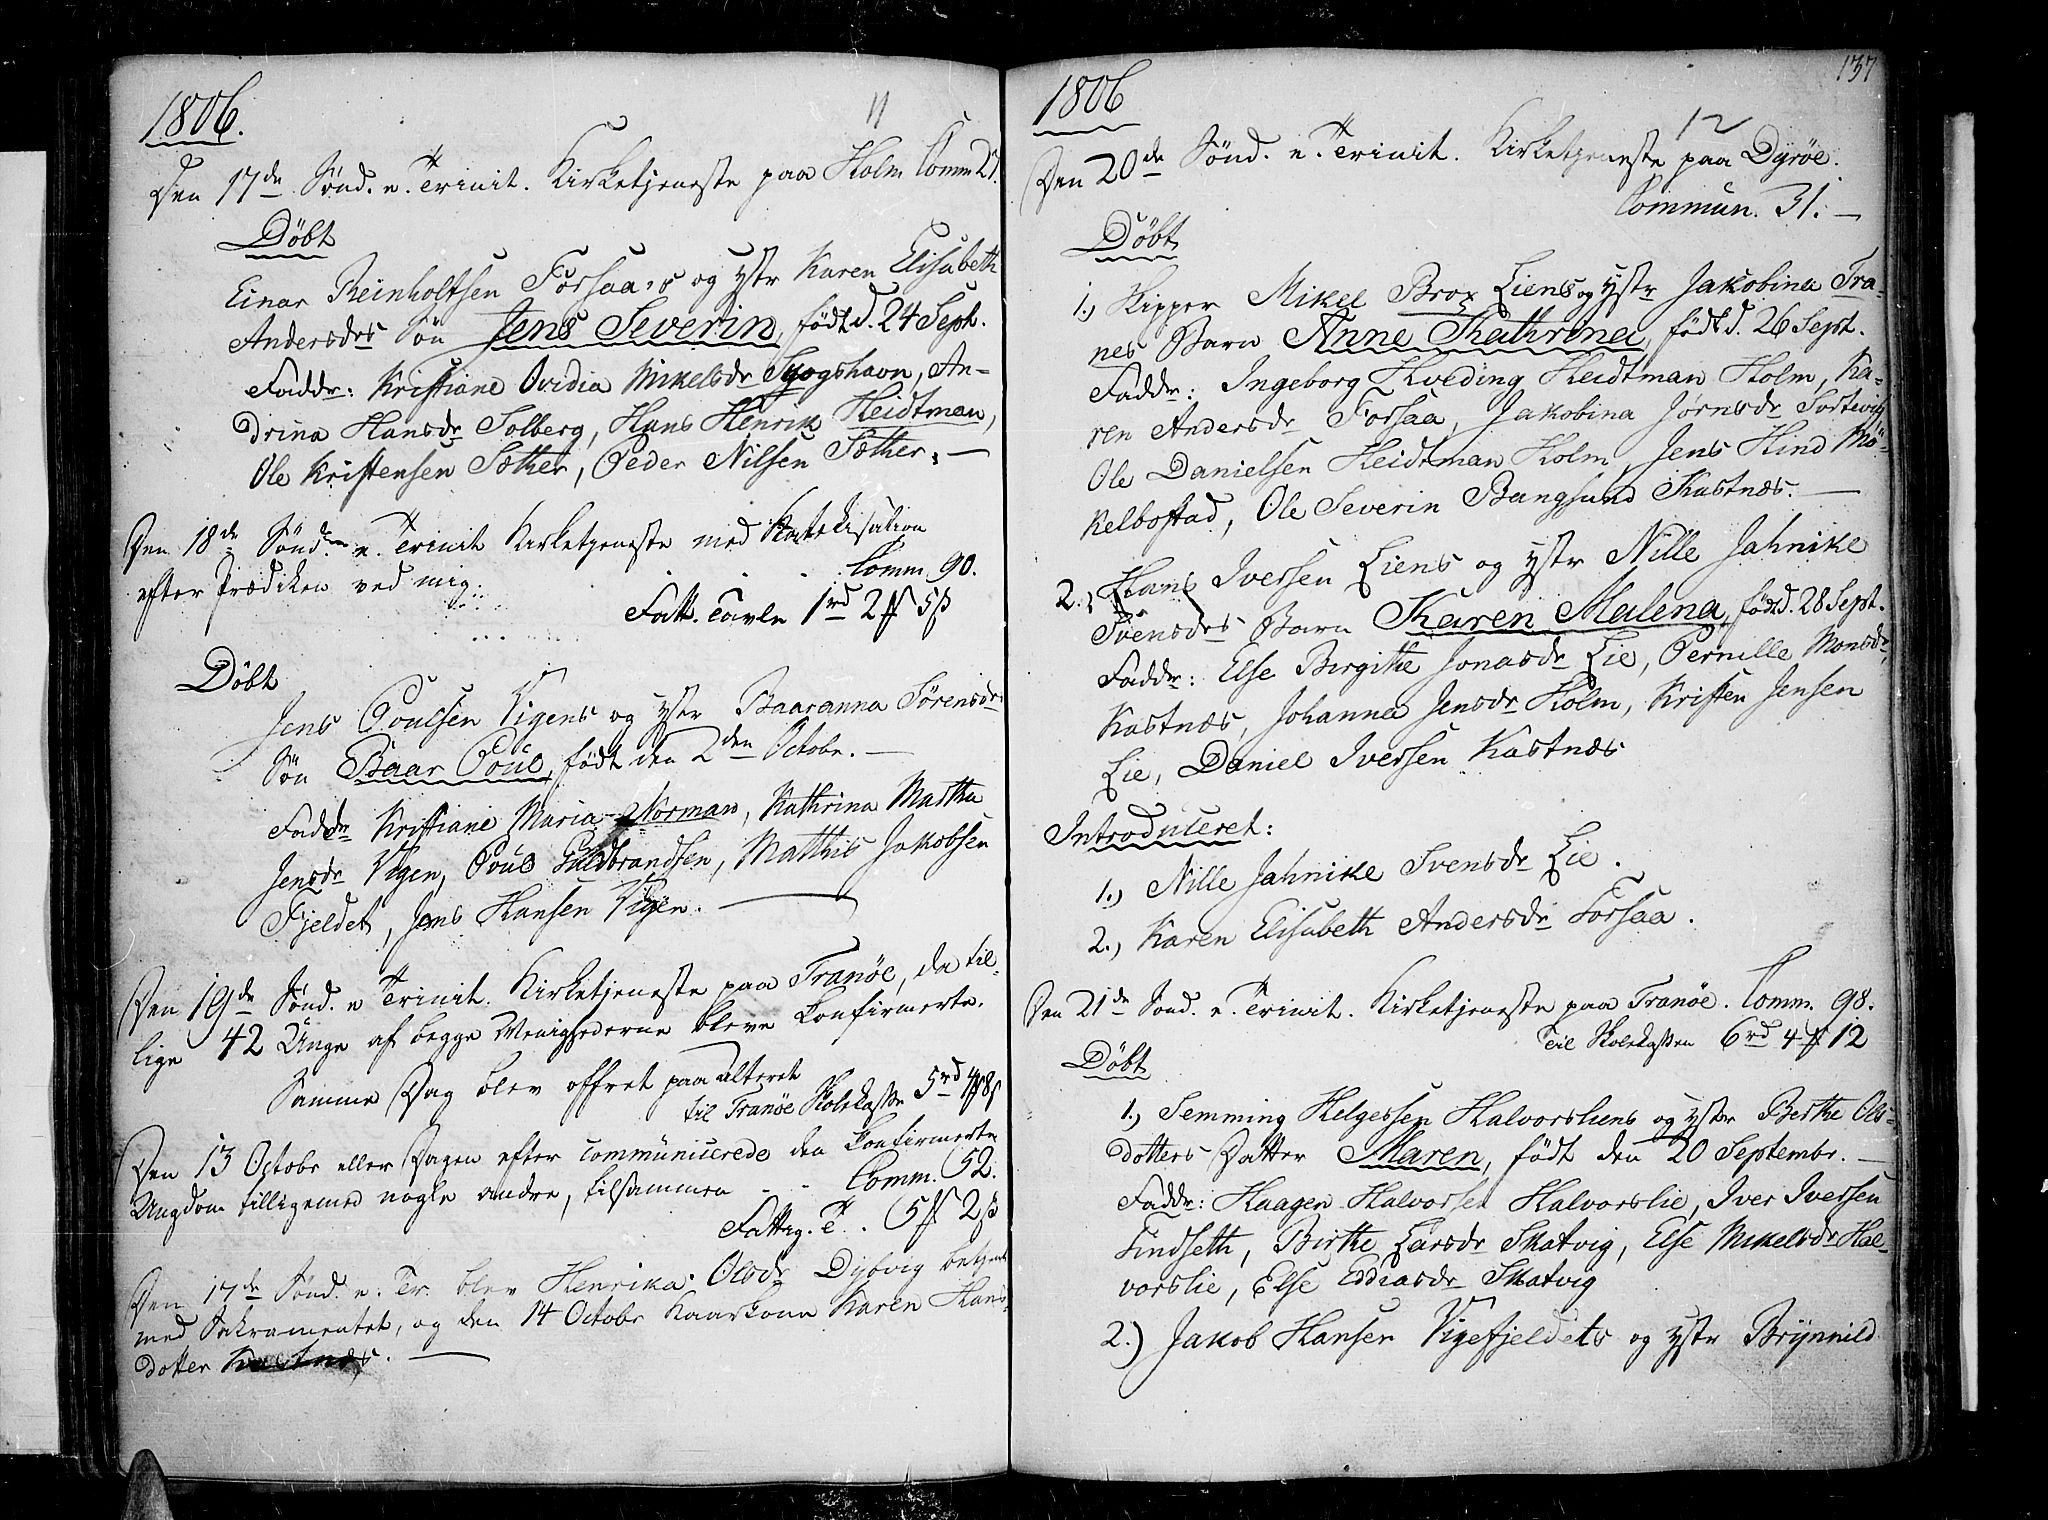 1806.
11
Den 17de Sönd. e. Trinit. Kirketjeneste paa Holm Comm 27.
Döbt
Einar Reinholtsen Forsaa's og Hstr Karen Elisabeth
Andersdrs Sön Jens Severin, född d. 24 Sept.
Faddr: Kristiane Ovidia Mikelsdr Skogshavn, An-
drina Hansdr Solberg, Hans Henrik Heidtman,
Ole Kristensen Sæther, Peder Nilsen Sæther. —
Den 18de Sönd. e. Trinit Kirketjeneste med Katekisation
efter Prædiken ved mig. Comm. 90.
Fatt. Tavle 1rd 2ß 5ß
Döbt
Jens Poulsen Vigens og Hstr Baaranna Sörensdr
Sön Baar Poul, födt den 2den Octobr. —
Faddr Kristiane Maria Norman, Kathrina Martha
Jensdr Vigen, Poul Guldbrandsen, Matthis Jakobsen
Fjeldet, Jens Hansen Vigen. —
Den 19de Sönd. e Trinit. Kirketjeneste paa Tranöe, da til-
lige 42 Unge af begge Menighederne bleve Confirmerte.
Samme Dag blev offret paa alteret
til Tranöe Skolekasse 5rd 4ß 8ß
Den 13 Octobr eller Dagen efter communicerede den Confirmerte
Ungdom tilligemed nogle andre, tilsammen - - Comm. 52.
Fattig. T. . 5ß 2ß
Den 17de Sönd. e. Tr. blev Henrika Olsdr Dybvig betjent
med Sakramentet, og den 14 Octobr Kaarkone Karen Hans-
dotter Kastnæs. —
137
1806
12
Den 20de Sönd. e. Trinit. Kirketjeneste paa Dyröe.
Commun. 31. —
Döbt
1.) Skipper Mikel Brox Liens og Hstr Jakobina Tra-
nes Barn Anne Kathrina, födt d. 26 Sept.
Faddr: Ingeborg Hveding Heidtman Holm, Ka-
ren Andersdr Forsaa, Jakobina Jörnsdr Sortevig
Ole Danielsen Heidtman Holm, Jens Hind Mö-
kelbostad, Ole Severin Bangsund Kastnæs. —
2.) Hans Iversen Liens og Hstr Nille Jahnike
Svensdrs Barn Karen Malena, född. 28 Sept.
Faddr: Else Birgithe Jonasdr Lie, Pernille Monsdr,
Kastnæs, Johanna Jensdr Holm, Kristen Jensen
Lie, Daniel Iversen Kastnæs
Introduceret:
1.) Nille Jahnike Svensdr Lie.
2.) Karen Elisabeth Andersdr Forsaa.
Den 21de Sönd. e. Trinit. Kirketjeneste paa Tranöe. Comm. 98.
Til Skolekassen 6rd 4ß 12
Döbt
1.) Semming Helgessen Halvorsliens og Hstr Berthe Ols-
dotters Datter Maren, födt den 20 Septembr. —
Faddr: Haagen Halvorsen Halvorslie, Iver Iversen
Findseth, Birthe Larsdr Skatvig, Else Mikelsdr Hal-
vorslie, Else Eddiasdr Skatvig
2.) Jakob Hansen Vigefjeldets og Hstr Brynnild